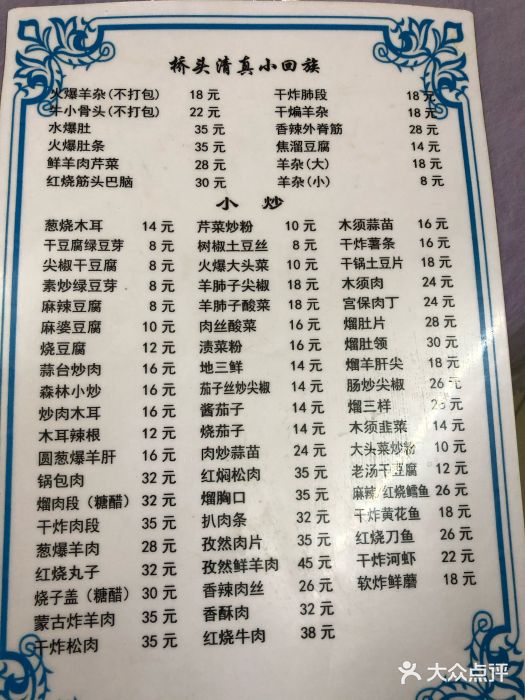 桥头清真小回族
火爆羊杂(不打包) 18元 干炸肺段 18元
牛小骨头(不打包) 22元 干煸羊杂 18元
水爆肚 35元 香辣外脊筋 28元
火爆肚条 35元 焦溜豆腐 14元
鲜羊肉芹菜 28元 羊杂(大) 18元
红烧筋头巴脑 30元 羊杂(小) 8元
小炒
葱烧木耳 14元 芹菜炒粉 10元 木须蒜苗 16元
干豆腐绿豆芽 8元 树椒土豆丝 8元 干炸薯条 16元
尖椒干豆腐 8元 火爆大头菜 10元 干锅土豆片 18元
素炒绿豆芽 8元 羊肺子尖椒 18元 木须肉 24元
麻辣豆腐 8元 羊肺子酸菜 18元 宫保肉丁 24元
麻婆豆腐 10元 肉丝酸菜 16元 熘肚片 28元
烧豆腐 12元 渍菜粉 16元 熘肚领 30元
蒜台炒肉 16元 地三鲜 14元 熘羊肝尖 18元
森林小炒 16元 茄子丝炒尖椒 14元 肠炒尖椒 26元
炒肉木耳 16元 酱茄子 14元 熘三样 26元
木耳辣根 12元 烧茄子 14元 木须韭菜 14元
圆葱爆羊肝 16元 肉炒蒜苗 24元 大头菜炒粉 10元
锅包肉 32元 红焖松肉 35元 老汤干豆腐 12元
熘肉段（糖醋） 32元 熘胸口 35元 麻辣/红烧鳕鱼 26元
干炸肉段 35元 扒肉条 32元 干炸黄花鱼 18元
葱爆羊肉 28元 孜然肉片 35元 红烧刀鱼 26元
红烧丸子 32元 孜然鲜羊肉 45元 干炸河虾 22元
烧子盖（糖醋） 30元 香辣肉丝 26元 软炸鲜蘑 18元
蒙古炸羊肉 35元 香酥肉 32元
干炸松肉 35元 红烧牛肉 38元
大众点评